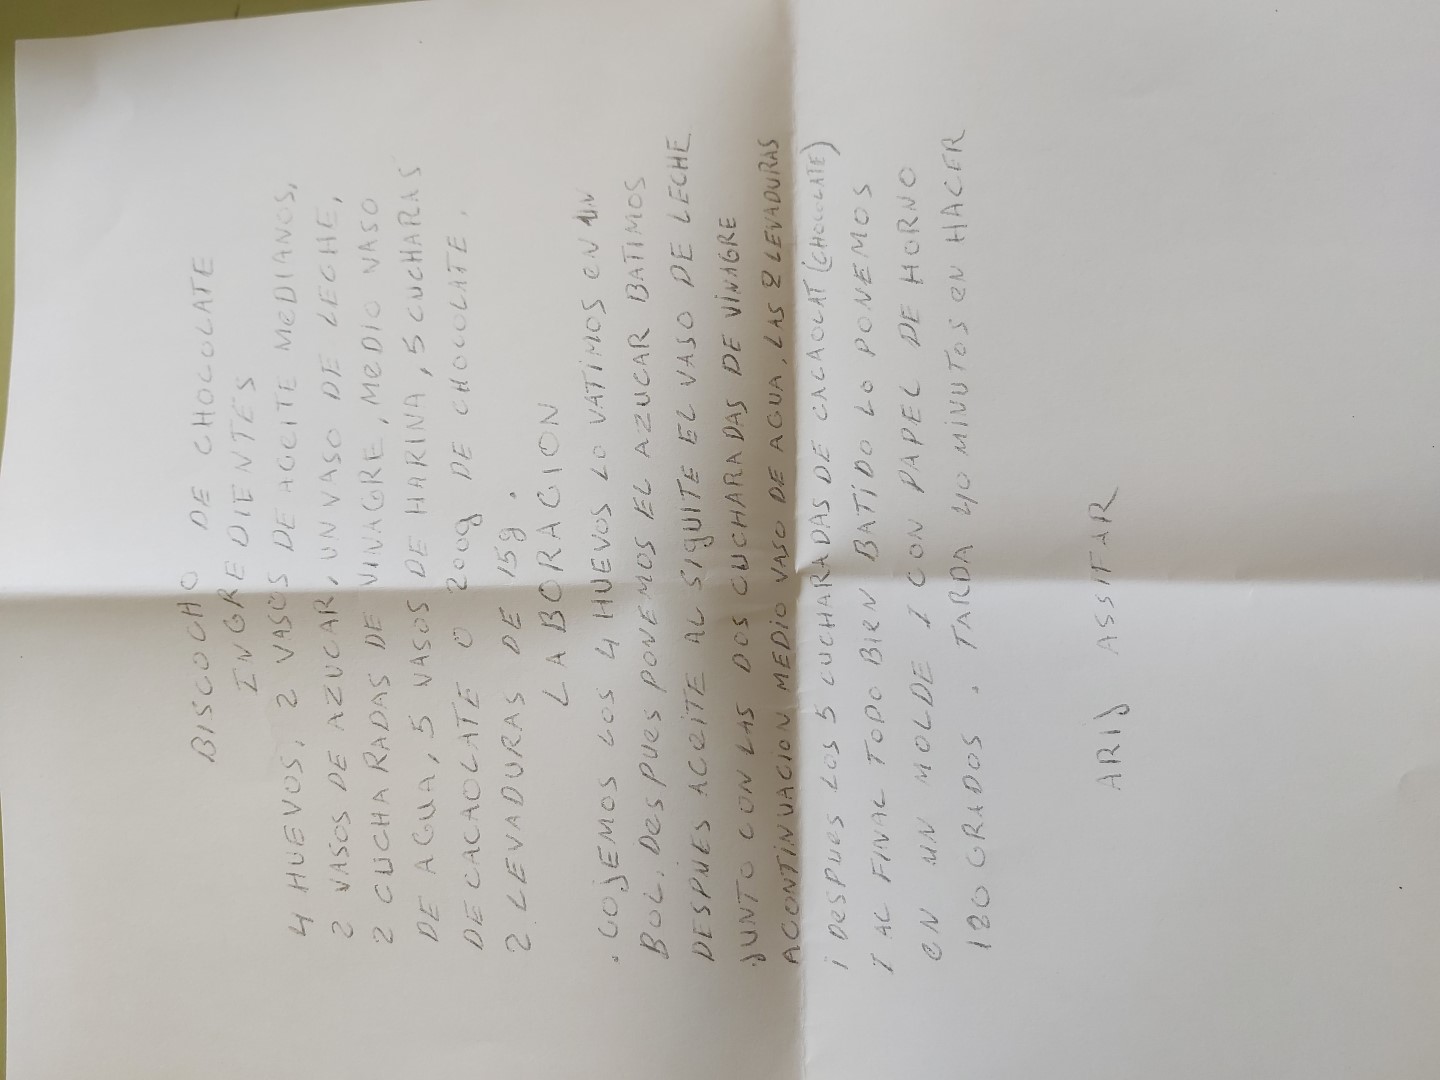 BISCOCHO DE CHOCOLATE
INGREDIENTES
4 HUEVOS, 2 VASOS DE ACCITE MEDIANOS,
2 VASOS DE AZUCAR, UN VASO DE LECHE,
2 CUCHARADAS DE VINAGRE, MEDIO VASO
DE AGUA, 5 VASOS DE HARINA, 5 CUCHARAS
DE CACAOLATE O 200g DE CHOCOLATE.
2 LEVADURAS DE 15g.
LABORACION
. COJEMOS LOS 4 HUEVOS LO VATIMOS EN UN
BOL. DESPUES PONEMOS EL AZUCAR BATIMOS
DESPUES ACEITE AL SIGUITE EL VASO DE LECHE
JUNTO CON LAS DOS CUCHARADAS DE VINAGRE
ACONTINUACION MEDIO VASO DE AGUA, LAS 2 LEVADURAS
i DESPUES LOS 5 CUCHARADAS DE CACAOLAT (CHOCOLATE)
I AL FINAL TODO BIEN BATIDO LO PONEMOS
EN UN MOLDE I CON PAPEL DE HORNO
180 GRADOS. TARDA 40 MINUTOS EN HACER
ARIJ ASSIFAR